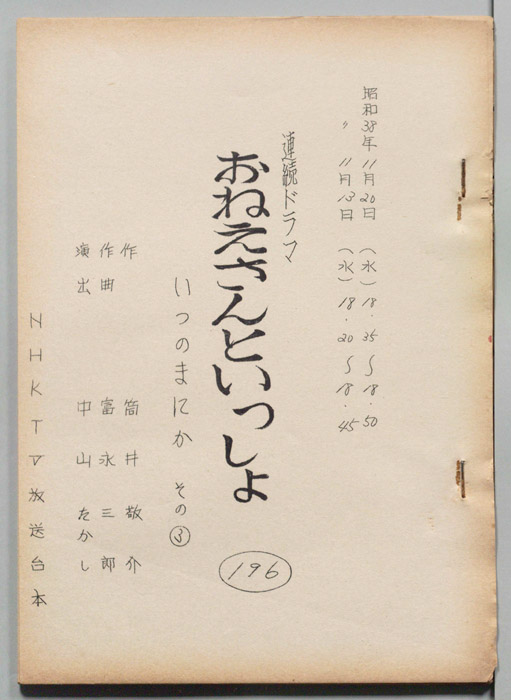 昭和38年11月20日（水）18.35～18.50
〃 11月13日（水）18.20～18.45
連続ドラマ
おねえさんといっしょ
196
いつのまにか その③
作 筒井敬介
作曲 富永三郎
演出 中山たかし
NHKTV放送台本